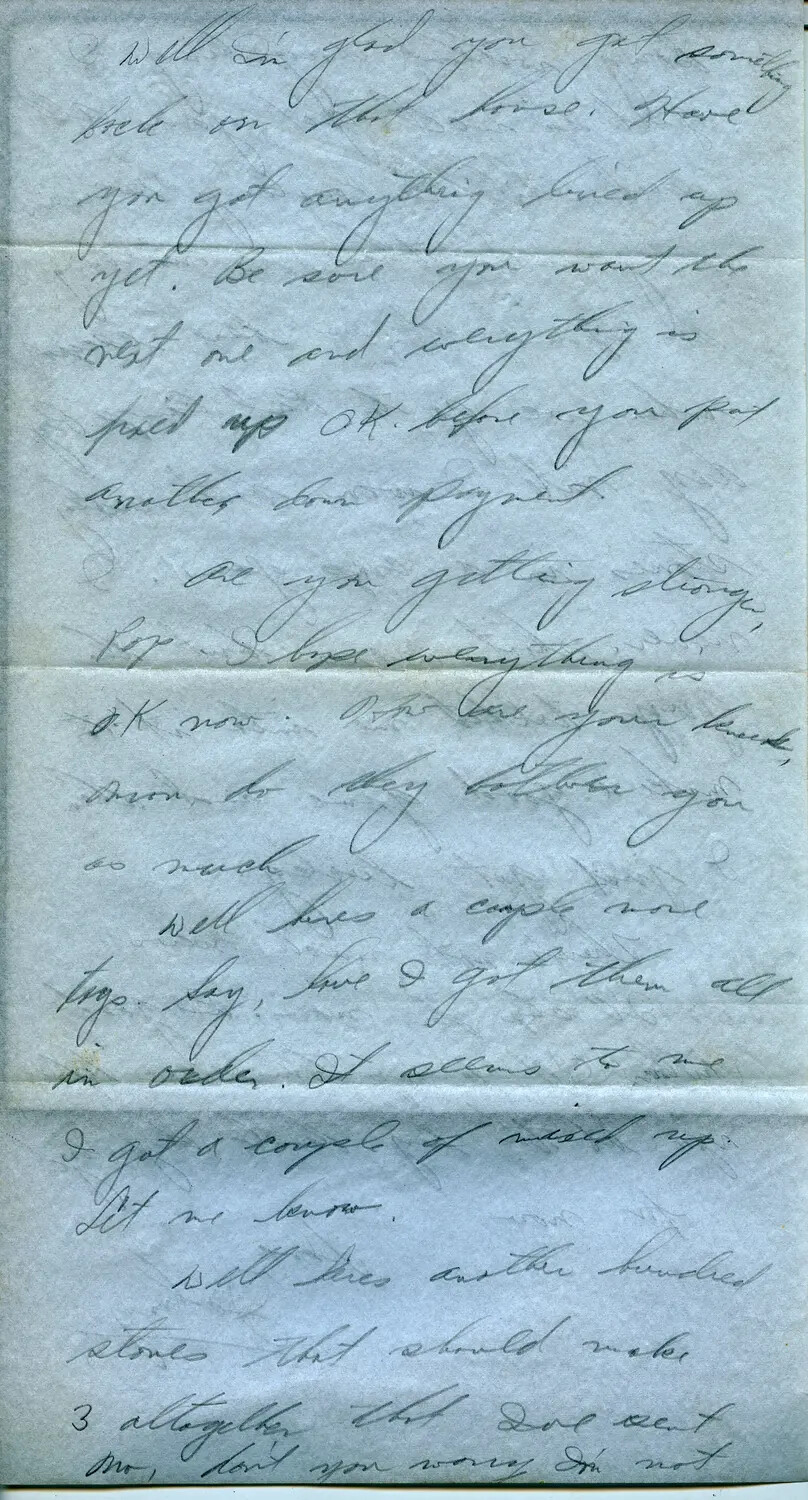 Well I'm glad you got something
back on that house. Have
you got anything lined up
yet. Be sure you want the
next one and everything is
fixed up OK. before you put
another down payment.
Are you getting stronger,
Pop. I hope everything is
O.K now. How are your knees,
mom, do they bother you
as much
Well heres a couple more
togs. Say, have I got them all
in order. It seems to me
I got a couple of mixed up.
Let me know.
Well heres another hundred
stones that should make
3 altogether that I've sent
Mo, don't you worry I'm not